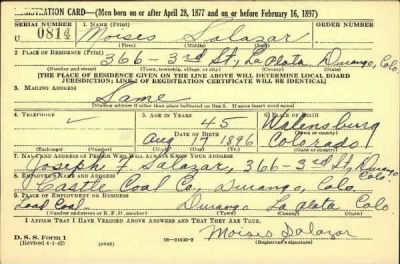 REGISTRATION CARD—(Men born on or after April 28, 1877 and on or before February 16, 1897)
SERIAL NUMBER 1. NAME (Print) ORDER NUMBER
U 0814 Moises Salazar
(First) (Middle) (Last)
2. PLACE OF RESIDENCE (Print)
366 - 3rd St, La Plata Durango, Colo.
(Number and street) (Town, township, village, or city) (County) (State)
[THE PLACE OF RESIDENCE GIVEN ON THE LINE ABOVE WILL DETERMINE LOCAL BOARD
JURISDICTION; LINE 2 OF REGISTRATION CERTIFICATE WILL BE IDENTICAL]
3. MAILING ADDRESS
Same
[Mailing address if other than place indicated on line 2. If same insert word same]
4. TELEPHONE 5. AGE IN YEARS 6. PLACE OF BIRTH
45 Walensburg
DATE OF BIRTH
Aug 17 1896 Colorado
(Mo.) (Day) (Yr.)
7. NAME AND ADDRESS OF PERSON WHO WILL ALWAYS KNOW YOUR ADDRESS
Joseph Salazar, 366 - 3rd St, Durango Colo
8. EMPLOYER'S NAME AND ADDRESS
Castle Coal Co, Durango, Colo.
9. PLACE OF EMPLOYMENT OR BUSINESS
Load Coal Durango La Plata Colo.
(Number and street or R. F. D. number) (Town) (County) (State)
I AFFIRM THAT I HAVE VERIFIED ABOVE ANSWERS AND THAT THEY ARE TRUE.
D. S. S. Form 1
(Revised 4-1-42) (over) Moises Salazar
(Registrant's signature)